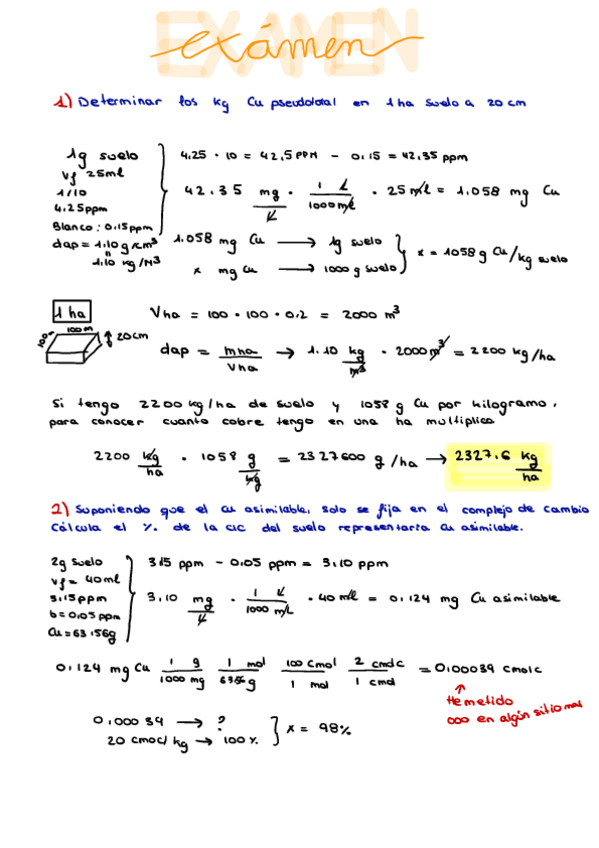 EXAMEN
exámen
1) Determinar los kg Cu pseudototal en 1 ha suelo a 20 cm
1g suelo
Vf 25ml
1/10
4.25ppm
Blanco: 0.15ppm
dap = 1.10 g/cm³
"
1.10 kg/M³
4.25 · 10 = 42.5 PPM - 0.15 = 42.35 ppm
42.35 mg/L · 1 L/1000 mL · 25 mL = 1.058 mg Cu
1.058 mg Cu → 1g suelo
x mg Cu → 1000 g suelo
x = 1058 g Cu/kg suelo
1 ha
100 m
100
20cm
Vha = 100 · 100 · 0.2 = 2000 m³
dap = mha/Vha → 1.10 kg/m³ · 2000 m³ = 2200 kg/ha
Si tengo 2200 kg/ha de suelo y 1058 g Cu por kilogramo,
para conocer cuanto cobre tengo en una ha multiplico
2200 kg/ha · 1058 g/kg = 2327600 g/ha → 2327.6 kg/ha
2) Suponiendo que el Cu asimilable, solo se fija en el complejo de cambio
Cálcula el %. de la CIC del suelo representaría Cu asimilable.
2g suelo
Vf = 40ml
3.15ppm
b = 0.05 ppm
Cu = 63.56g
3.15 ppm - 0.05 ppm = 3.10 ppm
3.10 mg/L · 1 L/1000 mL · 40 ml = 0.124 mg Cu asimilable
0.124 mg Cu 1 g/1000 mg 1 mol/63.56 g 100 cmol/1 mol 2 cmolc/1 cmol = 0.00039 cmolc
He metido
000 en algún sitio mal
0.00039 → ?
20 cmolc/kg → 100 %
x = 98%